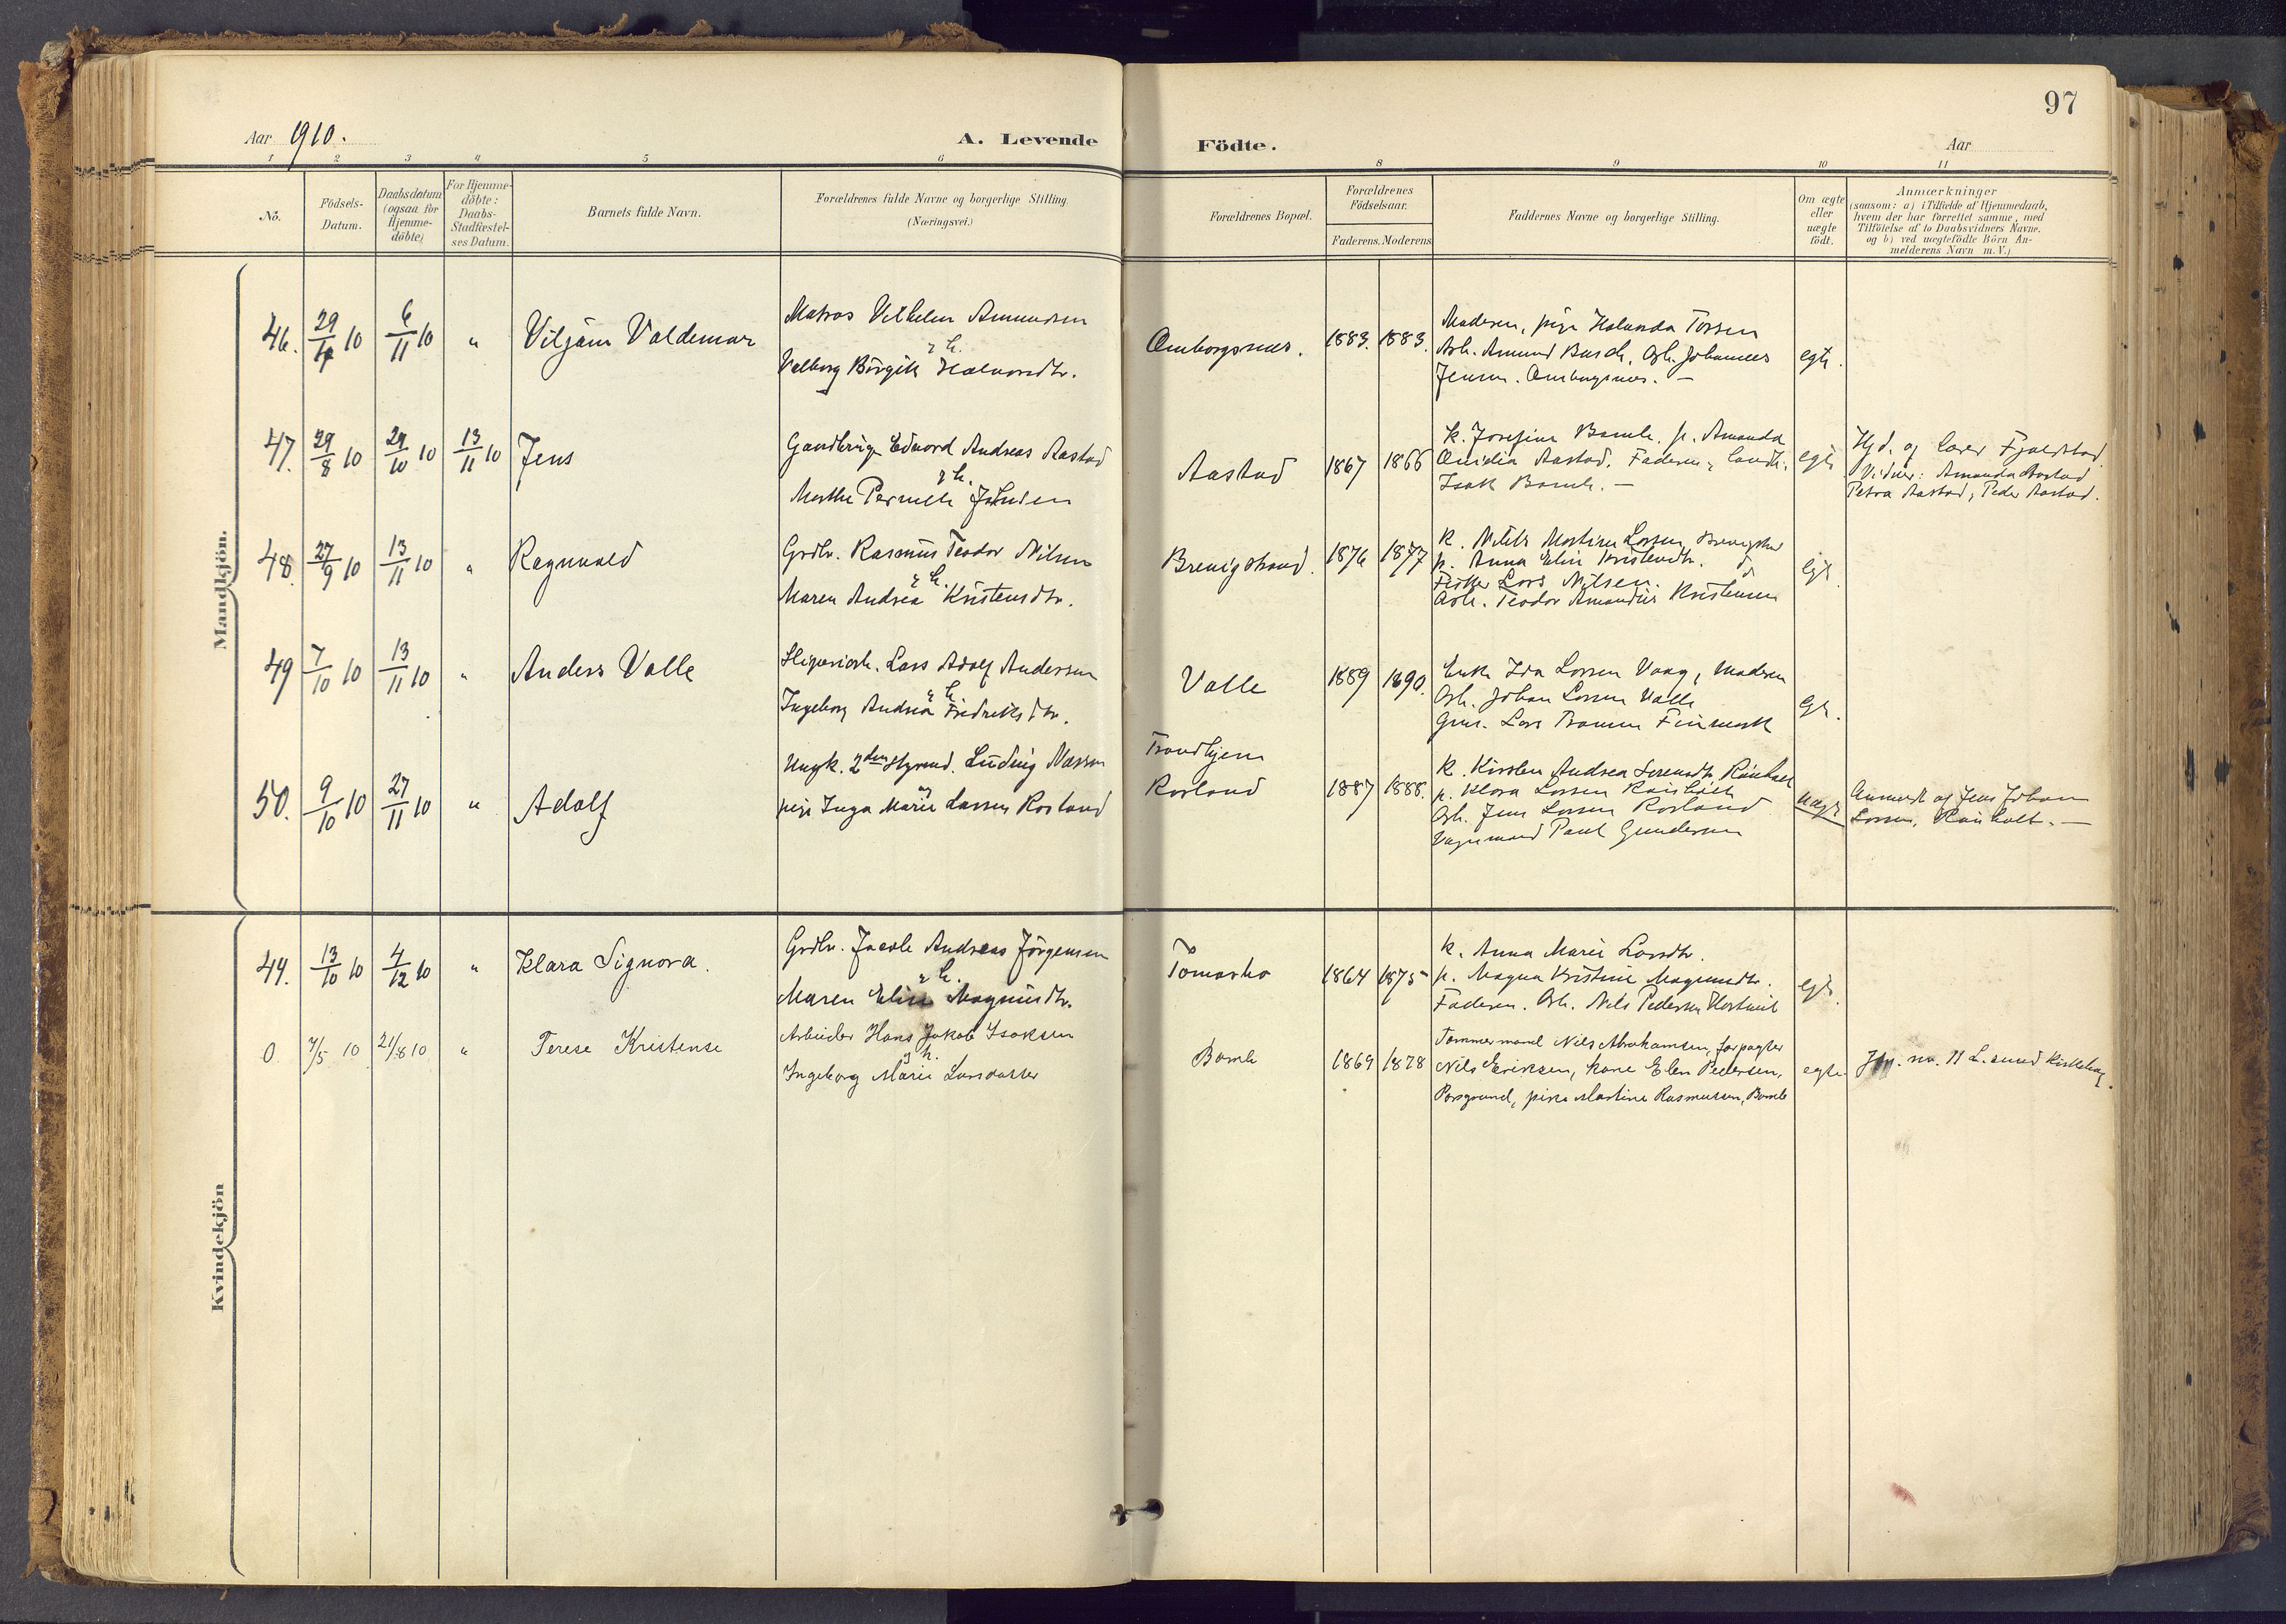 97
Aar 1910.
A. Levende Födte.
Aar
1 2 3 4 5 6 8 9 10 11
No.
Födsels-
Datum.
Daabsdatum
(ogsaa for
Hjemme-
döbte)
For Hjemme-
döbte:
Daabs-
Stadfæstel-
ses Datum.
Barnets fulde Navn.
Forældrenes fulde Navne og borgerlige Stilling.
(Næringsvei.)
Forældrenes Bopæl.
Forældrenes
Födselsaar.
Faderens. Moderens
Faddernes Navne og borgerlige Stilling.
Om ægte
eller
uægte
födt.
Anmærkninger
(saasom: a) i Tilfælde af Hjemmedaab,
hvem der har forrettet samme, med
Tilföielse af to Daabsvidners Navne.
og b) ved uægtefödte Börn An-
melderens Navn m.V.)
Mandkjön.
46. 29/10 10 6/11 10 " Viljam Valdemar
Matros Vilhelm Amundsen
& h.
Valborg Birgitte Halvorsdtr.
Omborgsnes. 1883. 1883.
Moderen, pige Halanda Tossen
Arb. Amund Busch, Arb. Johannes
Jensen. Omborgsnes. –
egte.
47. 29/8 10 29/10 10 13/11 10 Jens
Gaardbruger Edvard Andreas Aastad
& h.
Marthe Pernille Jensen
Aastad 1867 1866
K. Josefine Bamle. p. Amanda
Aastad. Faderen, Gaardb.
Isak Bamle. –
egte
Hjd. af Lærer Fjeldstad.
Vidner: Amanda Aastad
Petra Aastad, Peder Aastad.
48. 27/9 10 13/11 10 " Ragnvald
Grdbr. Rasmus Teodor Nilsen
& h.
Maren Andrea Kristensdtr.
Brevigstrand. 1876 1877
K. Martine Larsen,
p. Anna Elise Kristensdtr.
Fisker Lars Nilsen.
Arb. Teodor Amandus Kristensen
egt.
49 7/10 10 13/11 10 " Anders Valle
Lars Adolf Andersen
& h.
Ingeborg Andrea Fredriksdtr.
Valle 1889 1890.
Enke Ida Larsen Vaag, Moderen
Arb. Johan Larsen Valle
Lars Finmark
egt.
50. 9/10 10 27/11 10 " Adolf
Ungk. 2den Styrmd. Ludvig Næssen
og
pige Inga Marie Larsen Rosland
Trondhjem
Rosland 1887 1888.
K. Kirsten Andrea Sørensdtr.
p. Klara Larsen
Arb. Jens Larsen Rosland
Paul Gundersen
uægte
Anmeldt af Jens Johan
Larsen,
Kvindekjön
44. 13/10 10 4/12 10 " Klara Signora.
Grdbr. Jacob Andreas Jörgensen
& h.
Maren Elise Magnusdtr.
1864 1875
K. Anna Marie Larsdtr.
p. Magna Kristine Magnusdtr.
Faderen. Arb. Nils Pedersen
egte.
0. 7/5 10 21/8 10 " Terese Kristense
Arbeider Hans Jakob Isaksen
& h.
Ingeborg Marie Larsdatter
Bamle 1869 1878
Tømmermand Nils Abrahamsen, forpagter
Nils Eriksen, kone Elen Pedersen,
Porsgrund, pike Martine Rasmussen, Bamle
egte.
no. 11 L.sund kirkebog.